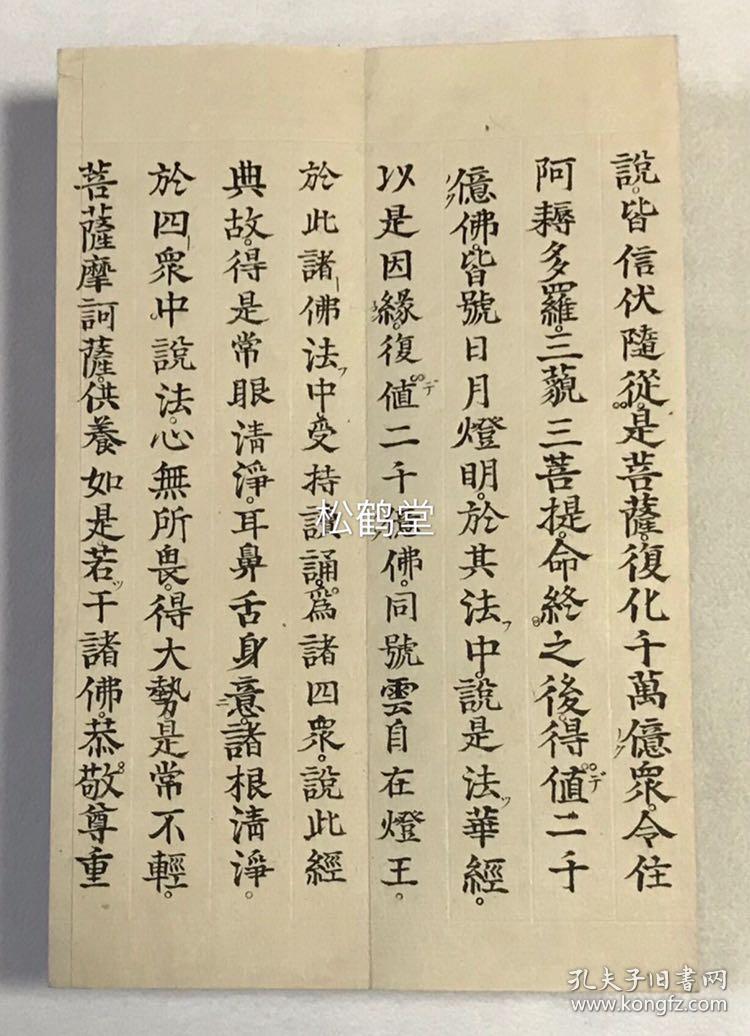 說皆信伏隨從是菩薩復化千萬億眾令住
阿耨多羅三藐三菩提命終之後得值二千
億佛皆號日月燈明於其法中說是法華經
以是因緣復值二千億佛同號雲自在燈王
於此諸佛法中受持讀誦為諸四眾說此經
典故得是常眼清淨耳鼻舌身意諸根清淨
於四眾中說法心無所畏得大勢是常不輕
菩薩摩訶薩供養如是若干諸佛恭敬尊重
松鹤堂
孔夫子旧书网
www.kongfz.com